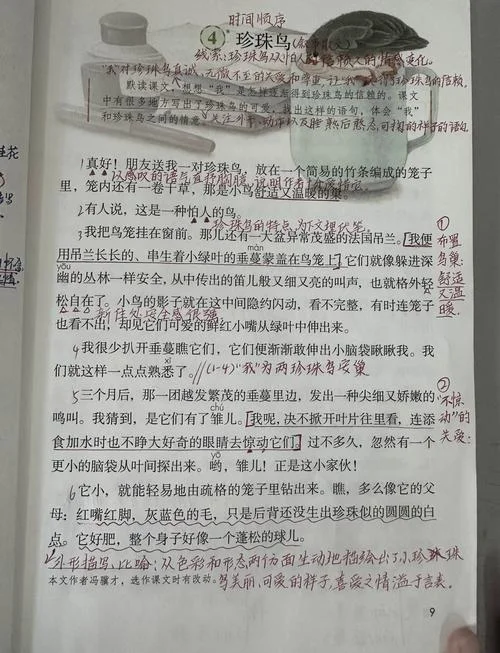 时间顺序
4 珍珠鸟(叙事散文)
线索:珍珠鸟从怕人到信赖人的情感变化。
我对珍珠鸟真诚、无微不至的关爱和尊重,让"我"获得了珍珠鸟的信赖。
默读课文,想想"我"是怎样逐渐得到珍珠鸟的信赖的。课文
中有很多地方写出了珍珠鸟的可爱,找出这样的语句,体会"我"
和珍珠鸟之间的情意。关注外形、动作以及
1真好!朋友送我一对珍珠鸟,放在一个简易的竹条编成的笼子
里,笼内还有一卷干草,那是小鸟舒适又温暖的巢。
以感叹的语气直抒胸臆,说明作者十分
2有人说,这是一种怕人的鸟。
珍珠鸟的特点,为下文埋伏笔
3我把鸟笼挂在窗前。那儿还有一大盆异常茂盛的法国吊兰。[我便
màn
用吊兰长长的、串生着小绿叶的垂蔓蒙盖在鸟笼上],它们就像躲进深
yōu
幽的丛林一样安全,从中传出的笛儿般又细又亮的叫声,也就格外轻
松自在了。小鸟的影子就在这中间隐约闪动,看不完整,有时连笼子
也看不出,却见它们可爱的鲜红小嘴从绿叶中伸出来。
①
布置鸟巢:舒适又温暖。
4我很少扒开垂蔓瞧它们,它们便渐渐敢伸出小脑袋瞅瞅我。我
xī
们就这样一点点熟悉了。//(1-4)"我"为两珍珠鸟安巢
5三个月后,那一团越发繁茂的垂蔓里边,发出一种尖细又娇嫩的
chú
鸣叫。我猜到,是它们有了雏儿。[我呢,决不掀开叶片往里看,连添
食加水时也不睁大好奇的眼睛去惊动它们。]过不多久,忽然有一个
yō
更小的脑袋从叶间探出来。哟,雏儿!正是这小家伙!
②
"不惊动"的关爱:
6它小,就能轻易地由疏格的笼子里钻出来。瞧,多么像它的父
母:红嘴红脚,灰蓝色的毛,只是后背还没生出珍珠似的圆圆的白
点。它好肥,整个身子好像一个蓬松的球儿。
外形描写、比喻:从色彩和形态两方面生动地描绘出了小珍珠
鸟美丽、可爱的样子,喜爱之情溢于言表。
本文作者冯骥才,选作课文时有改动。
9